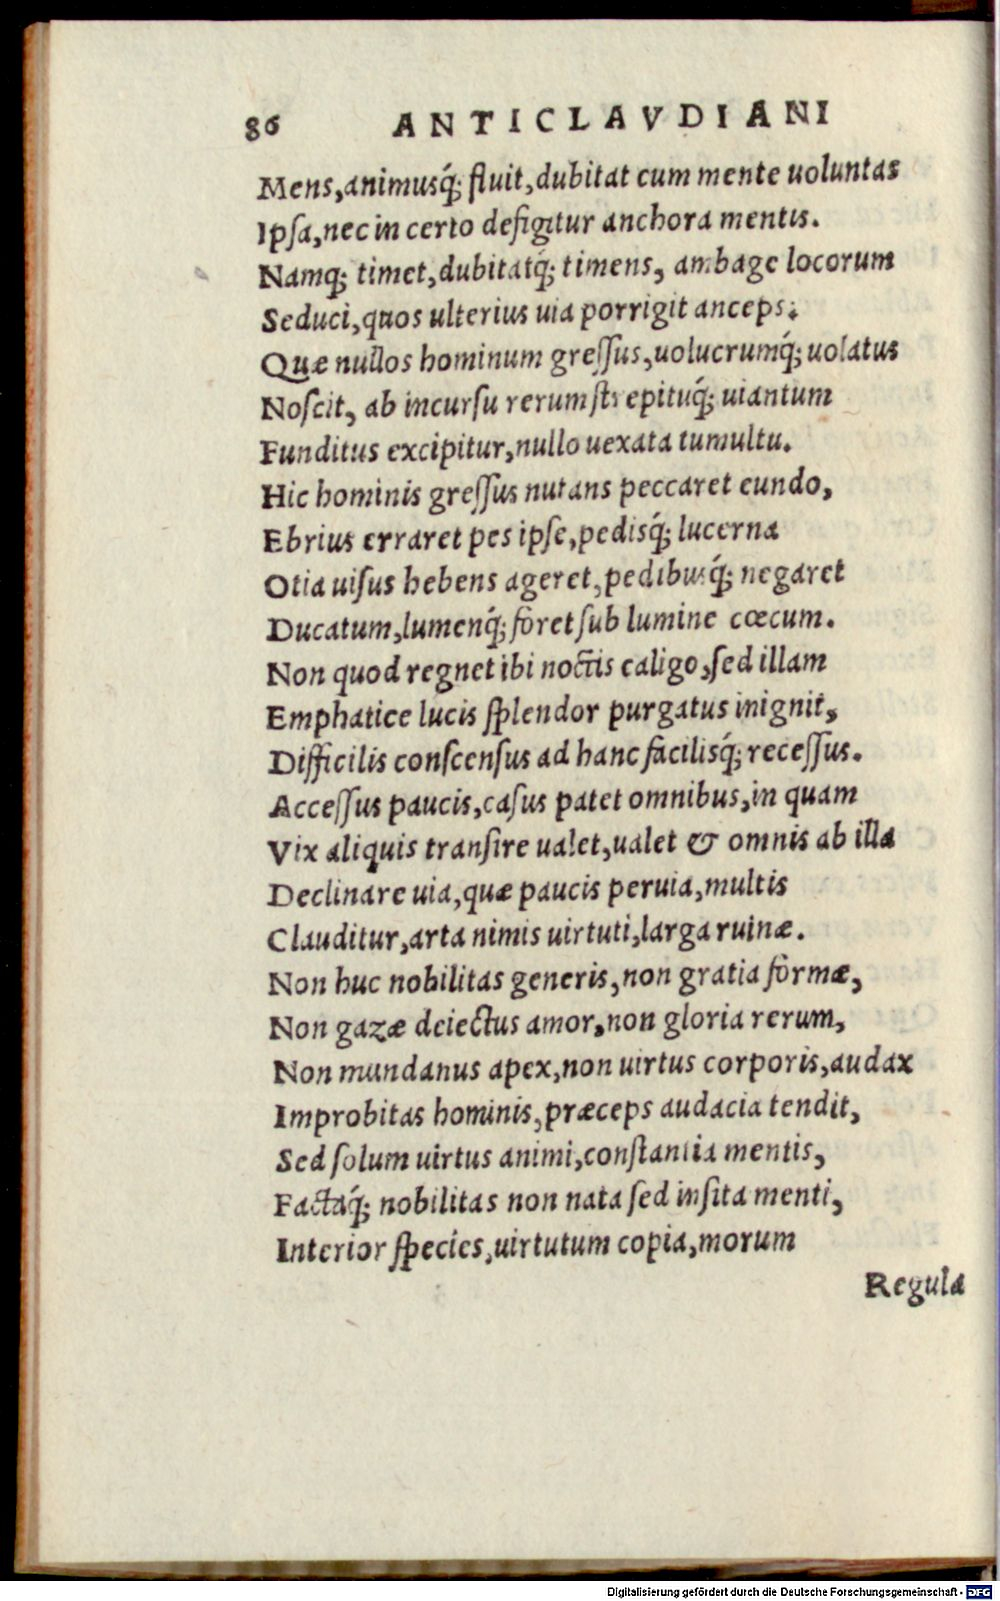 86 ANTICLAVDIANI
Mens,animusq́; fluit,dubitat cum mente uoluntas
Ipſa,nec in certo defigitur anchora mentis.
Namq; timet,dubitatq́; timens, ambage locorum
Seduci,quos ulterius uia porrigit anceps:
Quæ nullos hominum greſſus,uolucrumq́; uolatus
Noſcit, ab incurſu rerum ſtrepituq́; uiantum
Funditus excipitur,nullo uexata tumultu.
Hic hominis greſſus nutans peccaret eundo,
Ebrius erraret pes ipſe,pedisq́; lucerna
Otia uiſus hebens ageret,pedibusq́; negaret
Ducatum,lumenq́; foret ſub lumine cœcum.
Non quod regnet ibi noctis caligo,ſed illam
Emphatice lucis ſplendor purgatus inignit,
Difficilis conſcenſus ad hanc facilisq́; receſſus.
Acceſſus paucis,caſus patet omnibus,in quam
Vix aliquis tranſire ualet,ualet & omnis ab illa
Declinare uia,quæ paucis peruia,multis
Clauditur,arta nimis uirtuti,larga ruinæ.
Non huc nobilitas generis,non gratia formæ,
Non gazæ deiectus amor,non gloria rerum,
Non mundanus apex,non uirtus corporis,audax
Improbitas hominis,præceps audacia tendit,
Sed ſolum uirtus animi,conſtantia mentis,
Factaq́; nobilitas non nata ſed inſita menti,
Interior ſpecies,uirtutum copia,morum
Regula
Digitalisierung gefördert durch die Deutsche Forschungsgemeinschaft - DFG